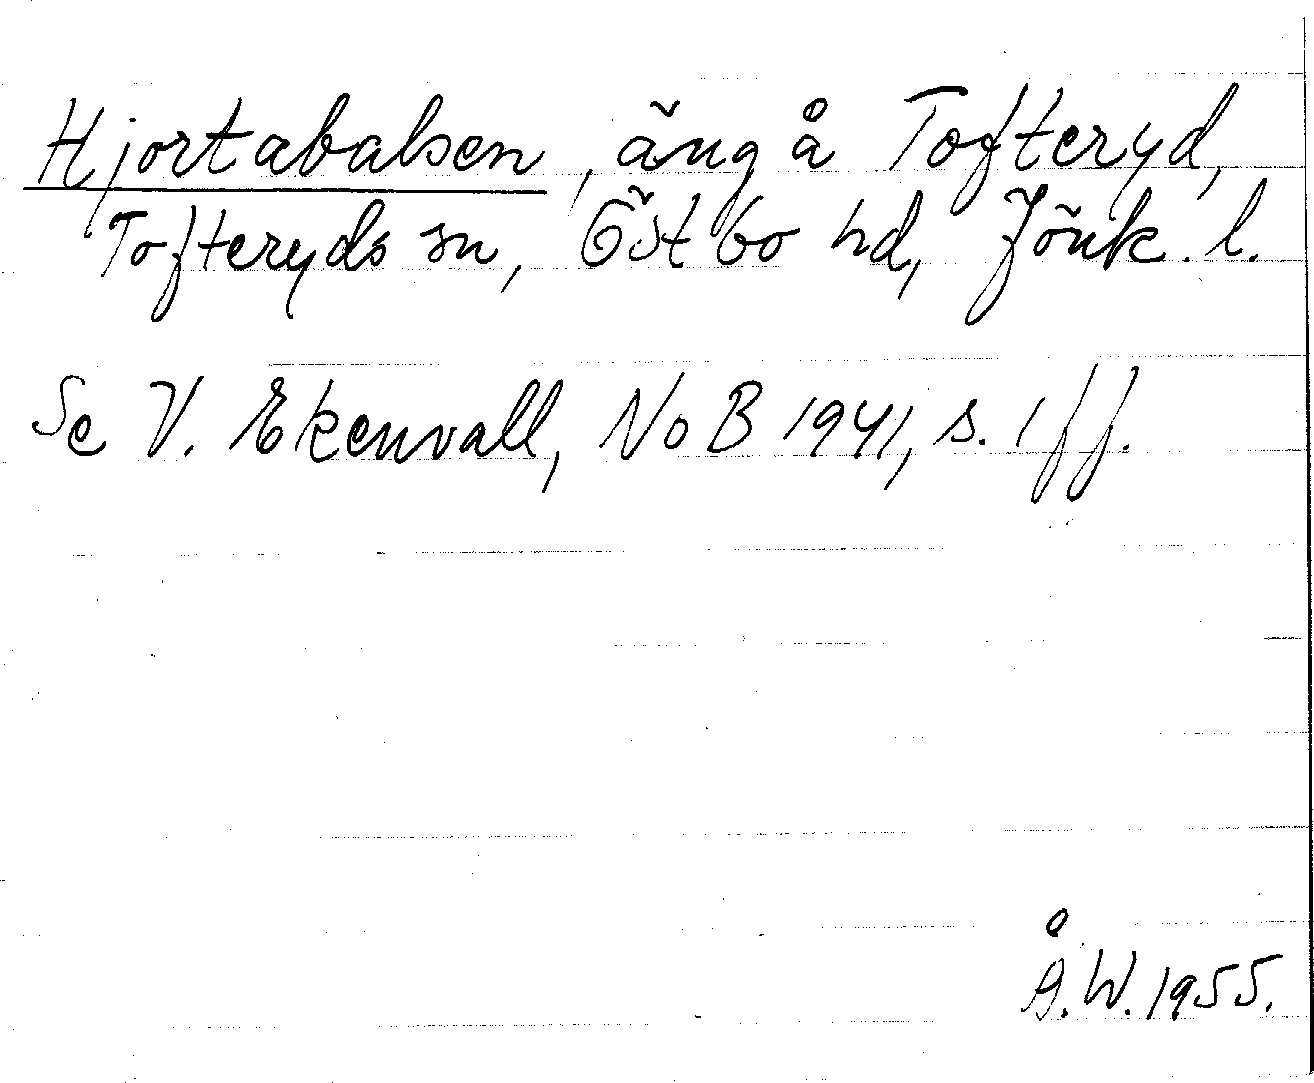 Hjortabalsen, äng å Tofteryd,
Tofteryds sn, Östbo hd, Jönk. l.
Se V. Ekenvall, NoB 1941, s. 1 ff.
Å.W. 1955.